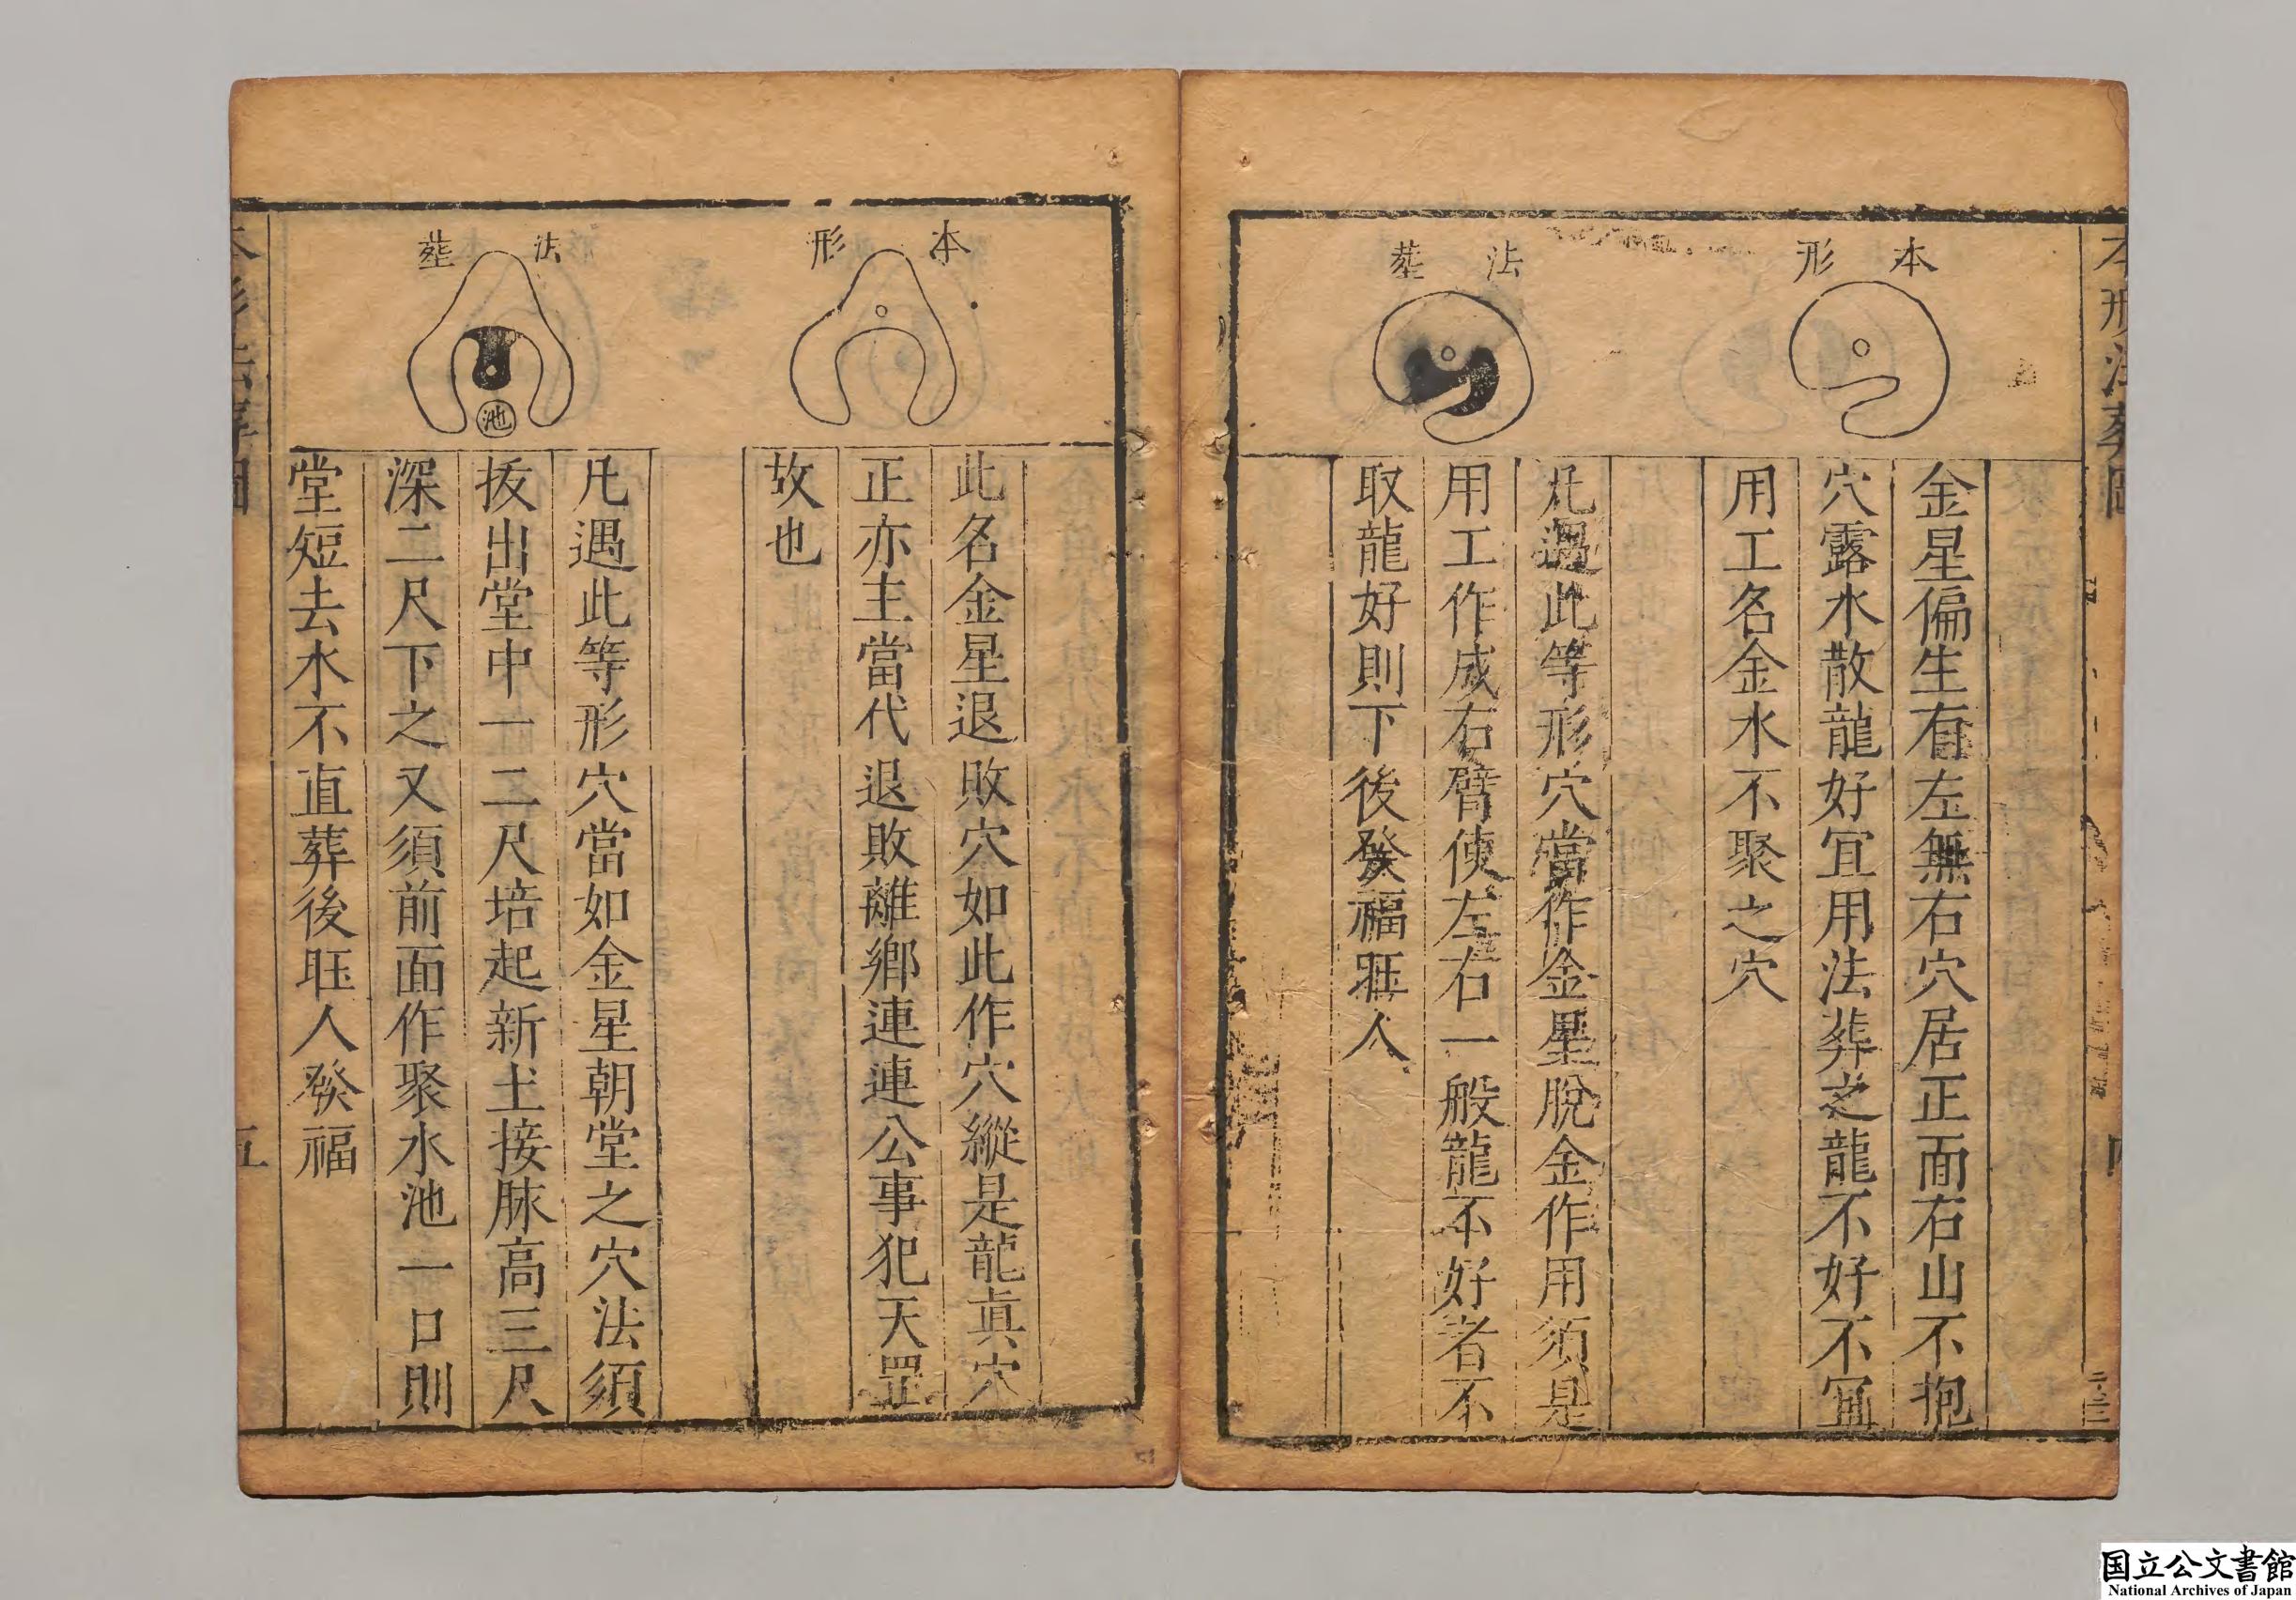 本形法葬圖
本形
金星偏生有左無右穴居正面右山不抱
穴露水散龍好宜用法葬之龍不好不宜
用工名金水不聚之穴
法塟
凡遇此等形穴當作金星脫金作用須是
用工作成右臂使左右一般龍不好者不
取龍好則下後發福旺人
本形
此名金星退敗穴如此作穴縱是龍眞穴
正亦主當代退敗離鄉連連公事犯天罡
故也
法塟
池
凡遇此等形穴當如金星朝堂之穴法須
拔出堂中一二尺培起新土接脉高三尺
深二尺下之又須前面作聚水池一口則
堂短去水不直葬後旺人發福
五
国立公文書館
National Archives of Japan